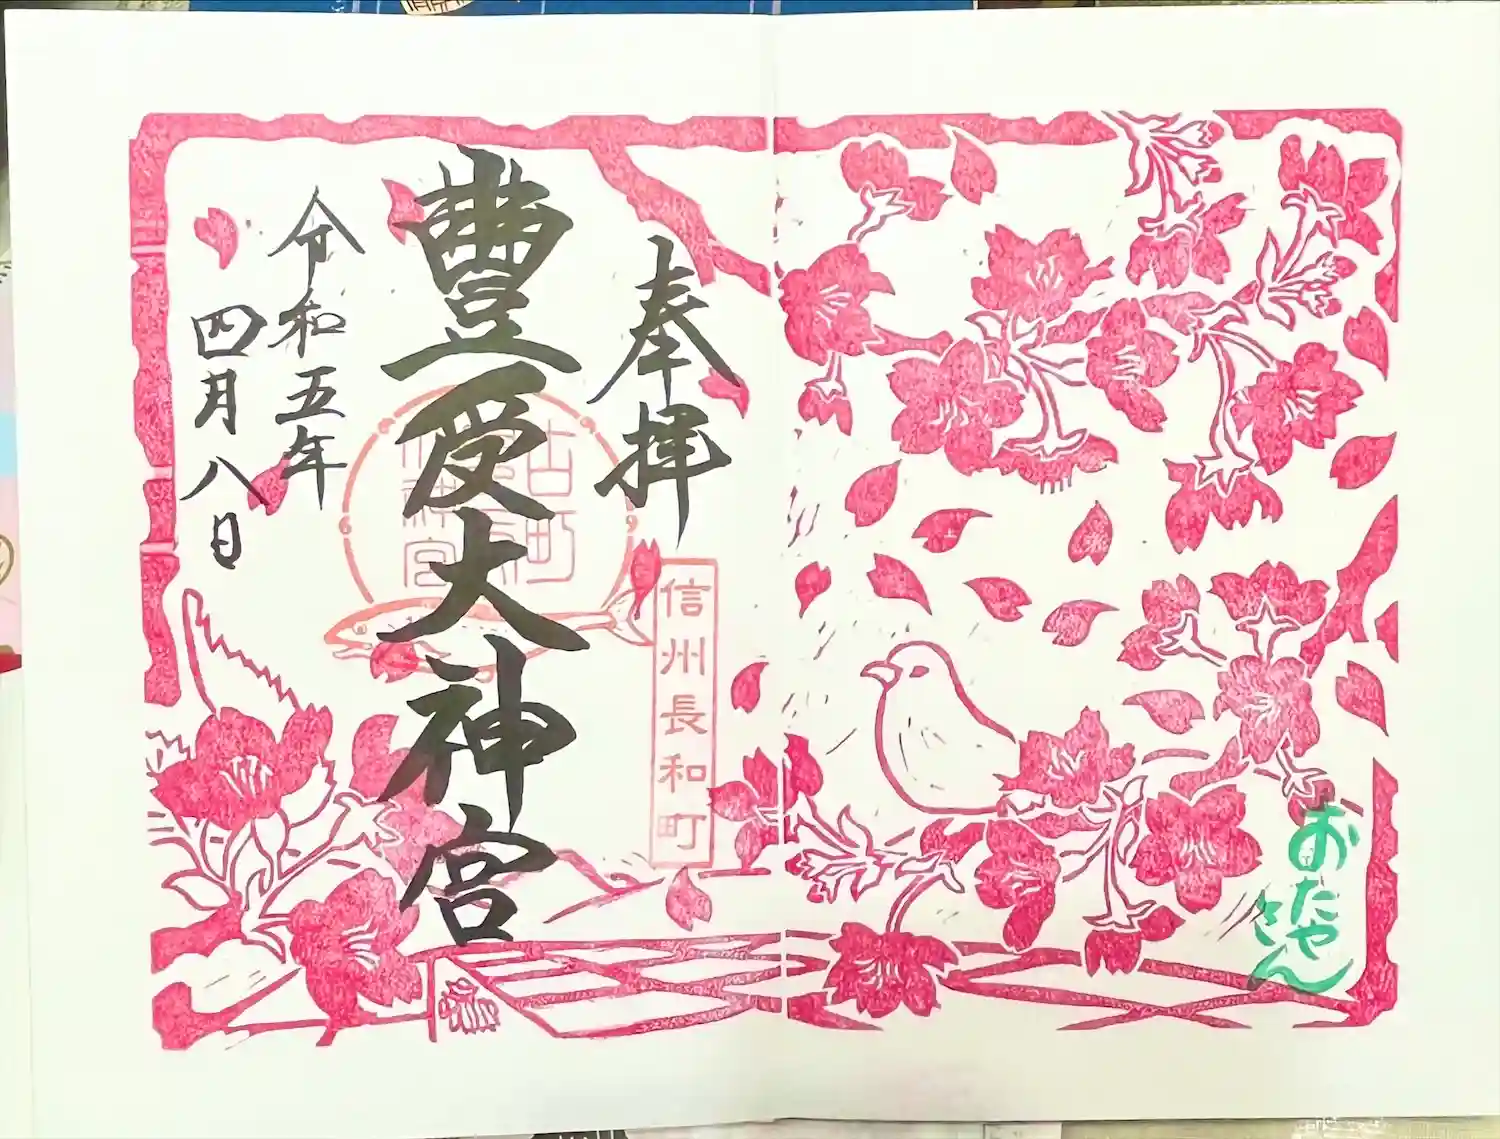 奉拝
豊受大神宮
令和五年
四月八日
信州長和町
古町
神宮
おたや
さん